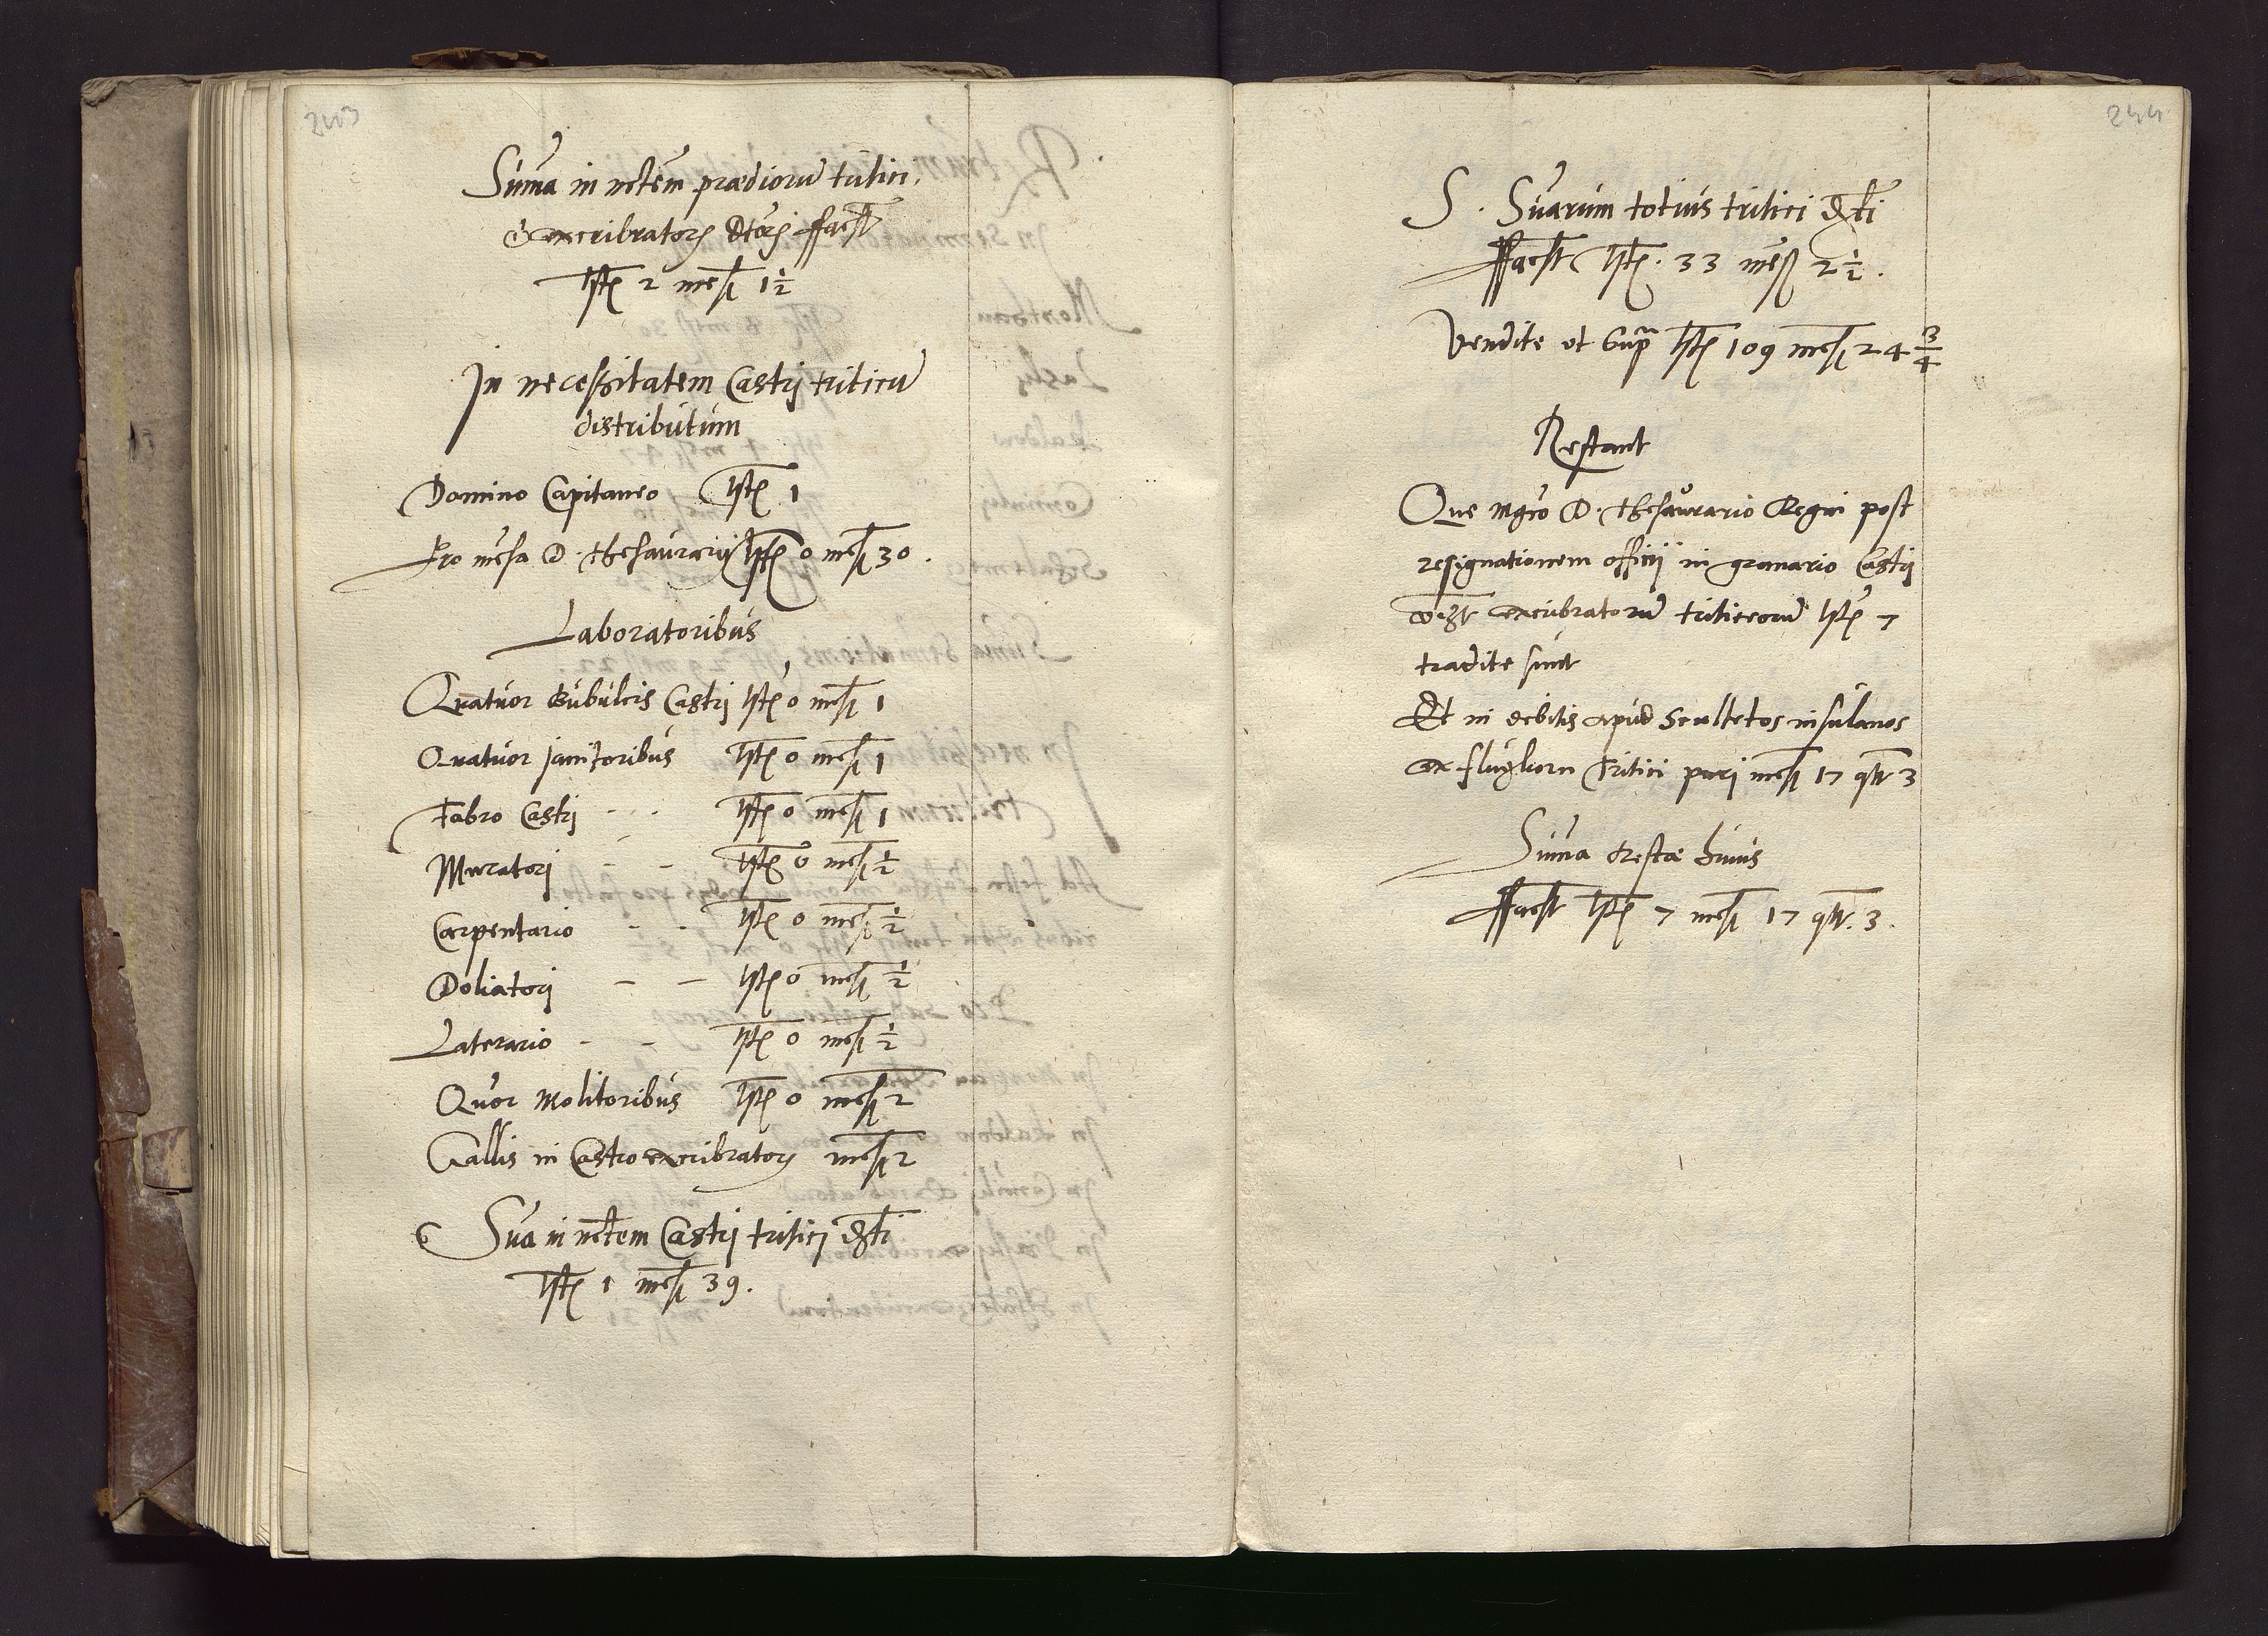 243
Suma in nctem prædioru tritici
et excribratorj dtorj ffact
lstj 2 mesj 1 1/2
In necessitatem Castrj triticu
distributum
Domino Capitaneo lstj 1
Pro mesa D. thesaurarij lstj 0 mesj 30.
Laboratoribus
Quatuor Bubulcis Castrj lstj 0 mesj 1
Quatuor janitoribus lstj 0 mesj 1
Fabro Castrj - - lstj 0 mesj 1
Muratorj - - lstj 0 mesj 1/2
Carpentario - - lstj 0 mesj 1/2
Doliatorj - - lstj 0 mesj 1/2
Laterario - - lstj 0 mesj 1/2
Quor Molitoribus lstj 0 mesj 2
Gallis in Castro excribratorj mesj 2
Sua in nctem Castrj triticj dti
lstj 1 mesj 39.
244
S. Suarum totius tritici dti
ffact lstj. 33 mesj 2 1/2.
Vendite ut supra lstj 109 mesj 24 3/4
Restant
Que mgco D. thesaurario Regio post
resignationem officij in granario Castrj
excribratoru triticorum lstj 7
tradite sunt
Et in debitis apud Scultetos insulanos
ex tritici purj mesj 17 qrt 3
Suma restæ huius
ffact lstj 7 mesj 17 qrt. 3.